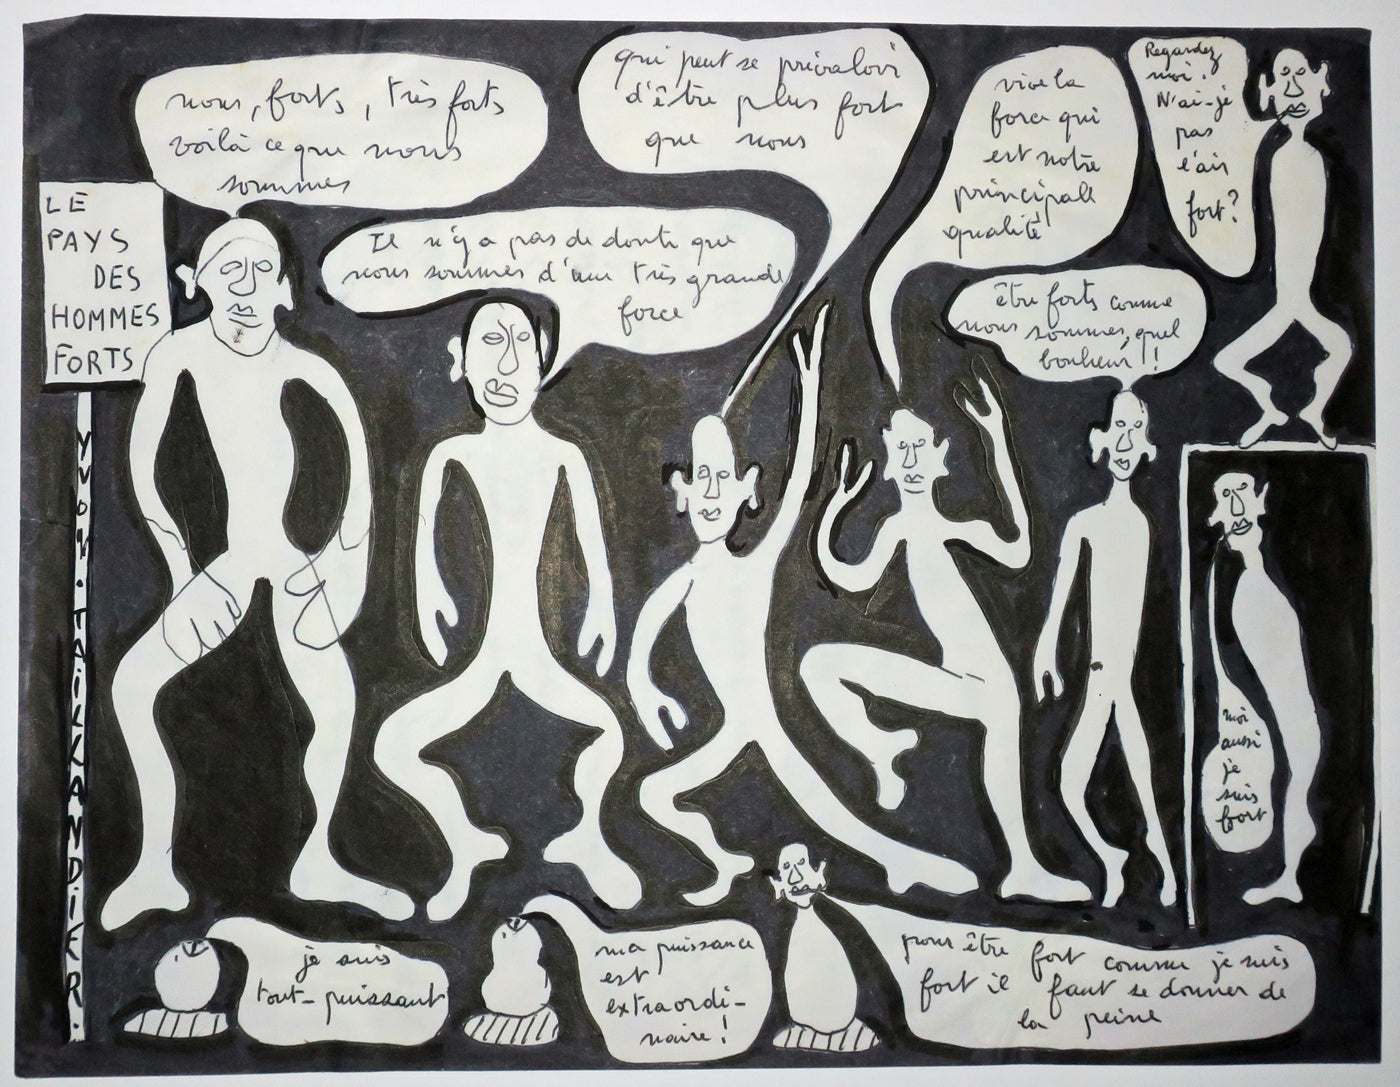 nous, forts, très forts
voilà ce que nous
sommes
qui peut se prévaloir
d'être plus fort
que nous
vive la
force qui
est notre
principale
qualité
Regardez
moi!
N'ai-je
pas
l'air
fort?
LE
PAYS
DES
HOMMES
FORTS
Il n'y a pas de doute que
nous sommes d'une très grande
force
être forts comme
nous sommes, quel
bonheur!!
moi
aussi
je
suis
fort
je suis
tout-puissant
ma puissance
est
extraordi-
naire!
pour être fort comme je suis
fort il faut se donner de
la peine